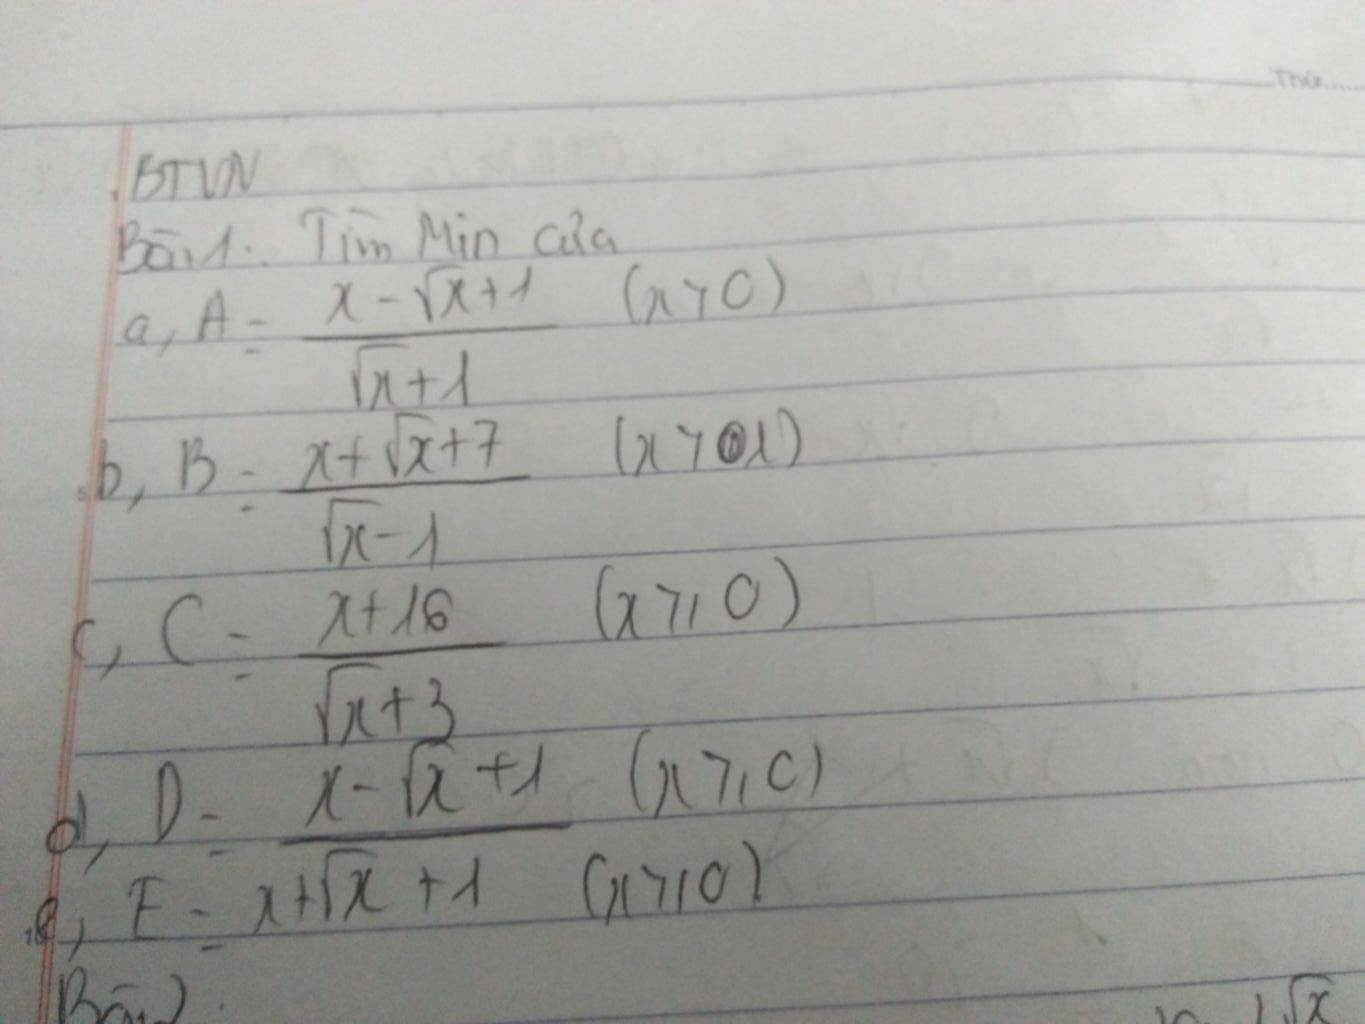 Thứ......
BTVN
Bài 1: Tìm Min của
a, A = (x - √x + 1) / (√x + 1) (x > 0)
b, B = (x + √x + 7) / (√x - 1) (x > 1)
c, C = (x + 16) / (√x + 3) (x ⩾ 0)
d, D = x - √x + 1 (x ⩾ 0)
e, E = x + √x + 1 (x ⩾ 0)
Bài 2: